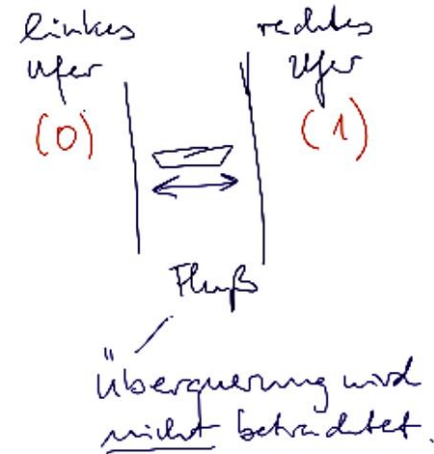 linkes
Ufer
(0)
rechtes
Ufer
(1)
Fluß
Überquerung wird
nicht betrachtet.